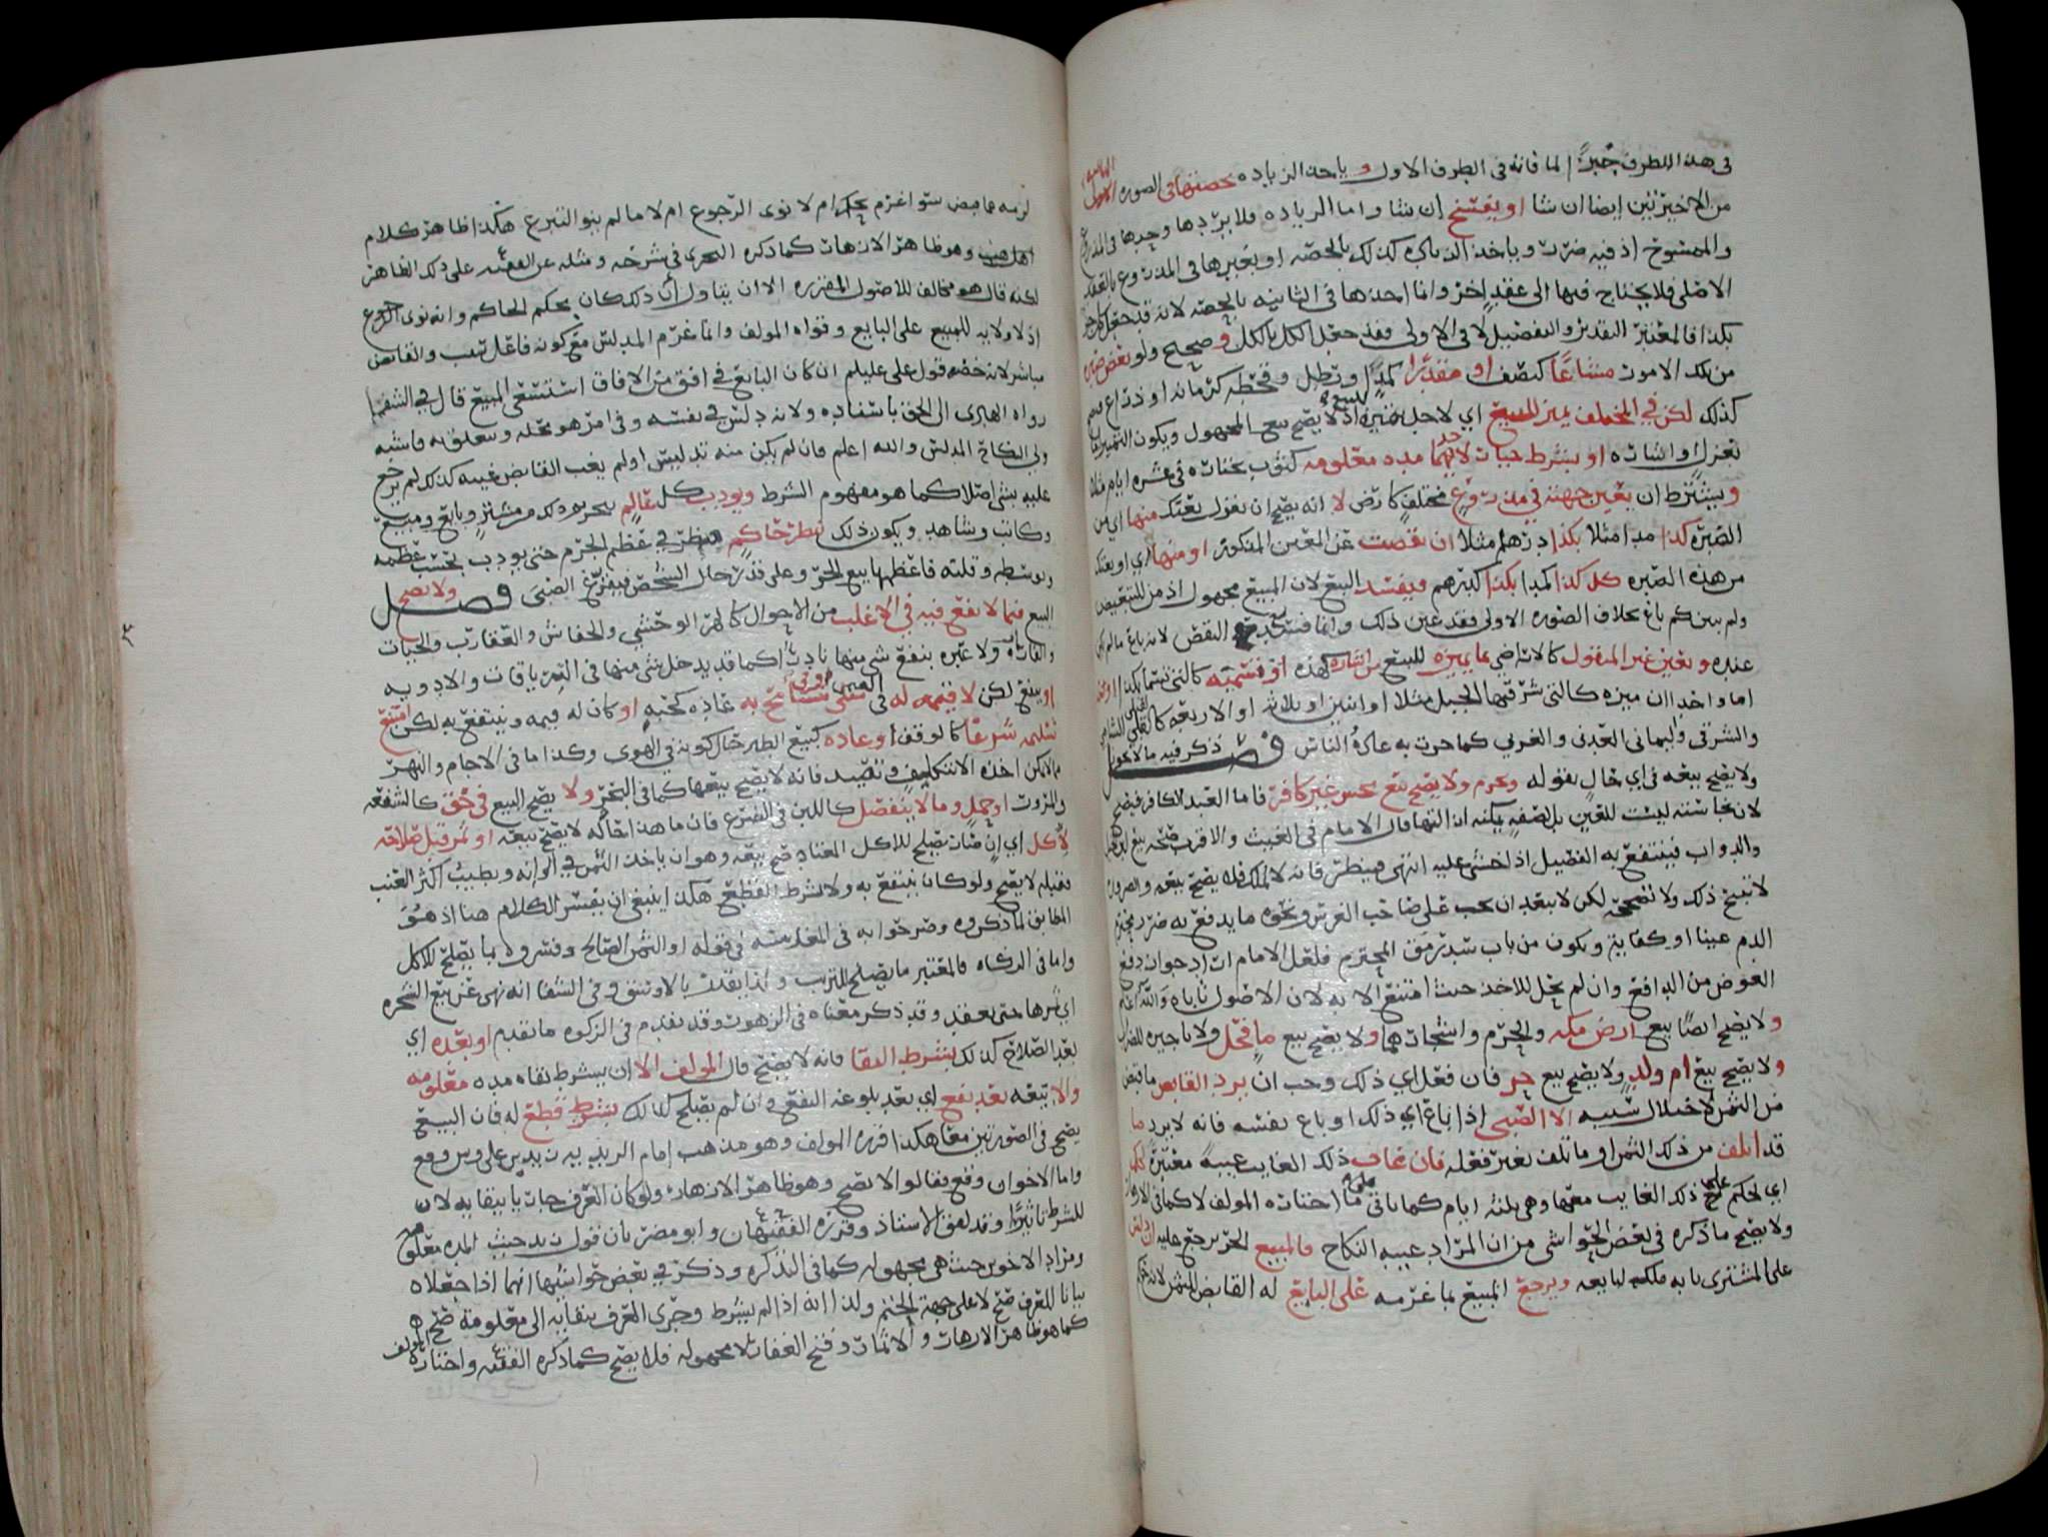 في هذا الطرف جبرًا لما فاته في الطرف الاول وياخذ الزياده حصتها في الصوره
من الاخيرتين ايضا ان شا او يفسخ ان شا واما الزياده فلا يردها
والممسوخ اذ فيه ضرر وياخذ كذلك بالحصه او يعتبرها في المذروع بالعقد
الاصلي فلا يحتاج فيها الى عقد اخر وانما اخذها في الثانيه بالحصه لانه قد جعل
بكذا فالمعتبر التقدير والتفصيل لا في الاولى فقد جعل الكل بالكل وصحيح ولو بعض
من تلك الامور مشاعًا كنصف او مقدرًا كمدًا ورطل
كذلك لكن في المختلف يميز للمبيع اي لاجل تميزه اذ لا يصح بيع المجهول ويكون التمييز
بعزل او اشاره او بشرط خيار لايهما مده معلومه كثوب يختاره في عشره ايام مثلا
ويشترط ان يعين جهته في مذروع مختلف كارض لا انه يصح ان يقول بعتك منها اي من
الصبره كذا مدا مثلا بكذا درهم مثلا ان نقصت عن المعين المذكور او منها اي او بعتك
من هذه الصبره كل كذا كمدا بكذا كدرهم فيفسد البيع لان المبيع مجهول اذ من للتبعيض
ولم يبين كم باع بخلاف الصوره الاولى فقد عين ذلك وانما فسد النقص لانه باع مالم
عنده وتعين غير المنقول كالاراضي بما يميزه للبيع من اشاره كهذه او تسميه كالتي تسما بكذا
اما واحد ان ميزه كالتي شرقيها الجبل مثلا او اثنين او ثلاثه او الاربعه كالقبلي
والشرقي واليماني العدني والغربي كما جرت به عادة الناس فصل ذكر فيه مالا يجوز
ولا يصح بيعه في اي حال بقوله ويحرم ولا يصح بيع نجس غير كافر فاما العبد الكافر فيصح
لان نجاسته ليست للعين بل لصفه يمكنه ازالتها قال الامام في الغيث والاقرب صحه بيع
والدواب فينتفع به الفصيل اذا خشي عليه انتهى فينظر فانه لا يملك فلا يصح بيعه
لا تبيح ذلك ولا تصححه لكن لا يبعد ان يجب على صاحب الفرس ونحوه ما يدفع به ضرر محترم
الدم عينا او كفاية ويكون من باب سد رمق المحترم فلعل الامام اراد جواز دفع
العوض من الدافع وان لم يحل للاخذ حيث امتنع الا به لان الاصول تاباه والله اعلم
ولا يصح ايضًا بيع ارض مكه والحرم واشجارهما ولا يصح بيع ما فحل ولا تاجيره للضراب
ولا يصح بيع ام ولد ولا يصح بيع حر فان فعل اي ذلك وجب ان يرد القابض ما قبض
من الثمن لاختلال سببه الا الصبي اذا باع اي ذلك او باع نفسه فانه لا يرد ما
قد اتلف من ذلك الثمن او ما تلف بغير فعله فان غاب ذلك الغايب غيبة معتبرة
اي لحكم على ذلك الغايب معها وهي ثلثه ايام كما ياتي ما اختاره المولف لا كما في الازهار
ولا يصح ما ذكره في بعض الحواشي من ان المراد غيبه النكاح فالمبيع الحر يرجع عليه
على المشتري بانه ملك لبايعه ويرجع المبيع بما غرمه على البايع له القابض الثمن لانه
لزمه مما قبض سوا غرم بحكم ام لا نوى الرجوع ام لا ما لم ينو التبرع هكذا ظاهر كلام
اهل المذهب وهو ظاهر الازهار كما ذكره النجري في شرحه ومثله عن الفقيه على ذلك الظاهر
لكنه قال هو مخالف للاصول المقرره الا ان يتاول ان ذلك كان بحكم الحاكم وانه نوى الرجوع
اذ لا ولايه للمبيع على البايع وقواه المولف وانما غرم المدلس مع كونه فاعل سبب والقابض
مباشر لانه خصه قول علي عليلم ان كان البايع في افق من الافاق استسعى المبيع قال في الشفا
رواه الهادي الى الحق باسناده ولانه دلس في نفسه وفي امر هو محله ومتعلق به فاشبه
ولي النكاح المدلس والله اعلم فان لم يكن منه تدليس او لم يغب القابض غيبه كذلك لم يرجع
عليه بشي اصلا كما هو مفهوم الشرط ويودب كل عالم بحريه ذلك من مشتر وبايع ومبيع
وكاتب وشاهد ويكون ذلك بنظر حاكم ينظر في عظم الجرم حتى يودب بحسب عظمه
وتوسطه وقلته فاعظمها بيع الحر وعلى قدر حال الشخص فيفزع الصبي فصل ولا يصح
البيع فيما لا نفع فيه في الاغلب من الاحوال كالهر الوحشي والخفاش والعقارب والحيات
والفار ولا عبره بنفع شي منها نادرا كما قد يدخل شي منها في الترياقات والادويه
او ينفع لكن لا قيمه له في عاده كحبه او كان له قيمه وينتفع به لكن امتنع
تسليمه شرعًا كالوقف او عاده كبيع الطير حال كونه في الهوى وكذا ما في الاجام والنهر
مما لا يمكن اخذه الا بتكليف وتصيد فانه لا يصح بيعها كما في البحر ولا يصح البيع في حق كالشفعه
والمرور او حمل وما لا ينفصل كاللبن في الضرع فان ما هذا حاله لا يصح بيعه او ثمر قبل صلاحه
لأكل اي ان صار يصلح للاكل المعتاد صح بيعه وهو ان ياخذ الثمر في الوانه ويطيب اكثر العنب
فقبله لا يصح ولو كان ينتفع به ولا بشرط القطع هكذا ينبغي ان يفسر الكلام هنا اذ هو
المطابق لما ذكروه وصرحوا به في المغارسه في قوله او الثمر الصالح وفسروه بما يصلح للاكل
واما في الزكاه فالمعتبر ما يصلح للتزبيب ولذا يقدر بالاوسق وفي الشفا انه نهى عن بيع الشجره
اي ثمرها حتى يعقد وقد ذكر معناه في الزهور وقد تقدم في الزكوه ما تقدم او بعده اي
بعد الصلاح كذلك بشرط البقا فانه لا يصح قال المولف الا ان يشرط بقاه مده معلومه
والا بيعه بعد نفع اي بعد بلوغه النفع وان لم يصلح كذلك بشرط قطع له فان البيع
يصح في الصورتين معا هكذا قرره المولف وهو مذهب امام الزيديه زيد بن علي
واما الاخوان وقع فقالوا لا يصح وهو ظاهر الازهار ولو كان العرف جاريا ببقايه لان
للشرط تاثيرًا وقد لفق الاستاذ وقرره الفقيهان وابو مضر بان قول زيد حيث المده معلومه
ومراد الاخوين حيث هي مجهوله كما في التذكره وذكر في بعض حواشيها انهما اذا جعلاه
بيانا للعرف صح لا على جهة الحتم ولذا انه اذا لم يشرط وجرى العرف ببقايه الى معلومة صح
كما هو ظاهر الازهار والاثمار وفتح الغفار لا مجهوله فلا يصح كما ذكره الفقيه واختاره المولف